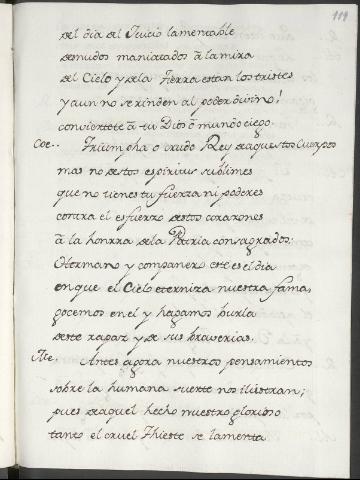 119
del dia del Juicio lamentable
desnudos maniatados â la mira
del Cielo y dela tierra estan los tristes
y aun no se rinden al poder divino!
conviertete â tu Dios ô mundo ciego.
Coe.. Triumpha ô crudo Rey de aquestos Cuerpos
mas no destos espiritus sublimes
que no tienes tu fuerza ni poderes
contra el esfuerzo destos corazones
â la honrra dela Patria consagrados:
O hermano y compañero este es el dia
en que el Cielo eterniza nuestra fama,
gocemos en el y hagamos burla
deste rapaz y de sus braverias.
Ate.. Antes agora nuestros pensamientos
sobre la humana suerte nos ilustran;
pues de aquel hecho nuestro glorioso
tanto el cruel Thieste se lamenta